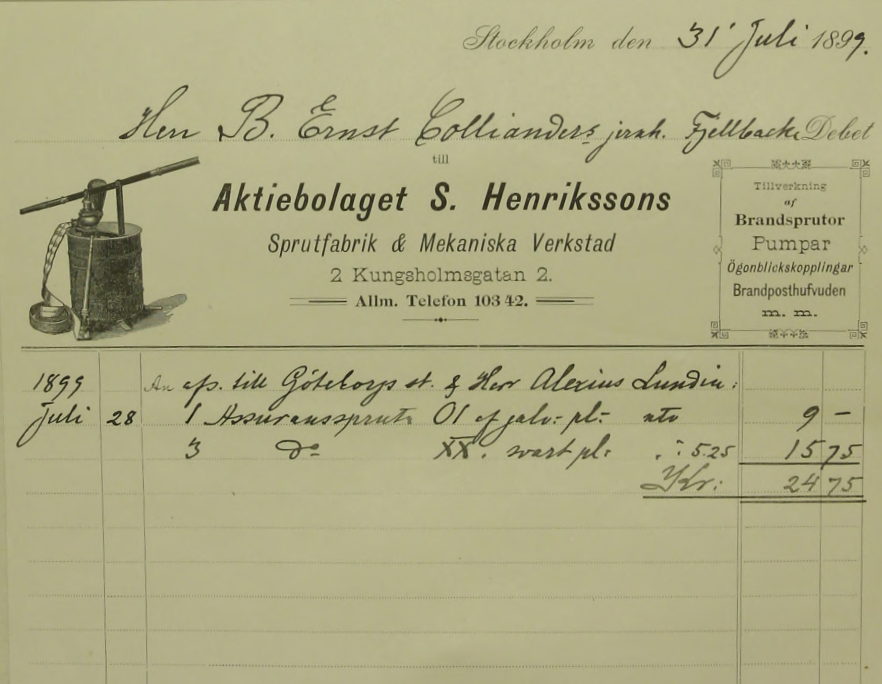 Stockholm den 31 Juli 1899.
Herr B. Ernst Collianders jernh. Fjellbacka Debet
till
Aktiebolaget S. Henrikssons
Sprutfabrik & Mekaniska Verkstad
2 Kungsholmsgatan 2.
Allm. Telefon 103 42.
Tillverkning
af
Brandsprutor
Pumpar
Ögonblickskopplingar
Brandposthufvuden
m. m.
1899 An afs. till Göteborgs st. & Herr Alexius Lundin:
Juli 28 1 Assuransspruta 01 af galv. pl: nto 9 –
3 do XX. svart pl: " : 5.25 15 75
Kr: 24 75